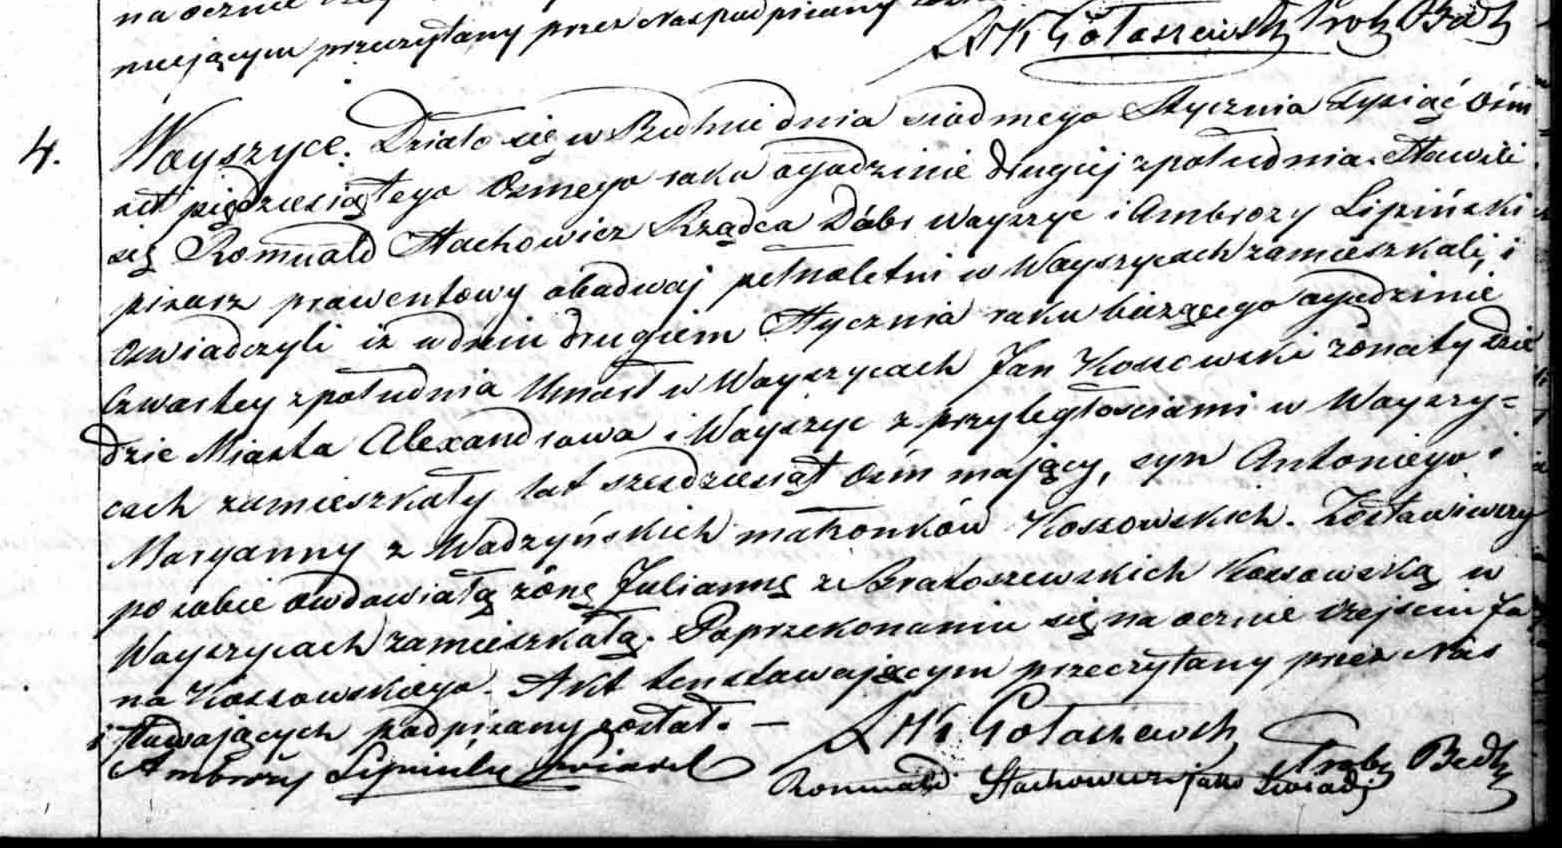 na ocznie
niejącym przeczytany przez Nas podpisany
XMGołaszewski Prob Bedł
4. Wayszyce. Działo się w Bedlnie dnia siodmego Stycznia tysiąć ośm
set pięдziesiątego osmego roku ogodzinie drugiej z południa. Stawili
się Romuald Stachowicz Rządca Dóbr Wayszyc i Ambrozy Lipiński
pisarz prowentowy obadwaj pełnoletni w Wayszycach zamieszkali, i
oswiadczyli iż w dniu drugiem Stycznia roku bieżącego ogodzinie
czwartey z południa Umarł w Wayszycach Jan Kossowski żonaty Dzie
dzic Miasta Alexandrowa i Wayszyc z przyległosciami w Wayszy=
cach zamieszkały lat szesdziesiąt ośm mający, syn Antoniego i
Maryanny z Wadzyńskich małzonków Kossowskich. Zostawiwszy
po sobie owdowiałą żonę Juliannę z Bratoszewskich Kossowską w
Wayszycach zamieszkałą. Po przekonaniu się na ocznie o zejsciu Ja
na Kossowskiego. Akt ten stawającym przeczytany przez Nas
i stawających podpisany został. —
XMGołaszewski Prob Bedł
Ambroży Lipiński swiadek
Romuald Stachowicz jako Swiadek